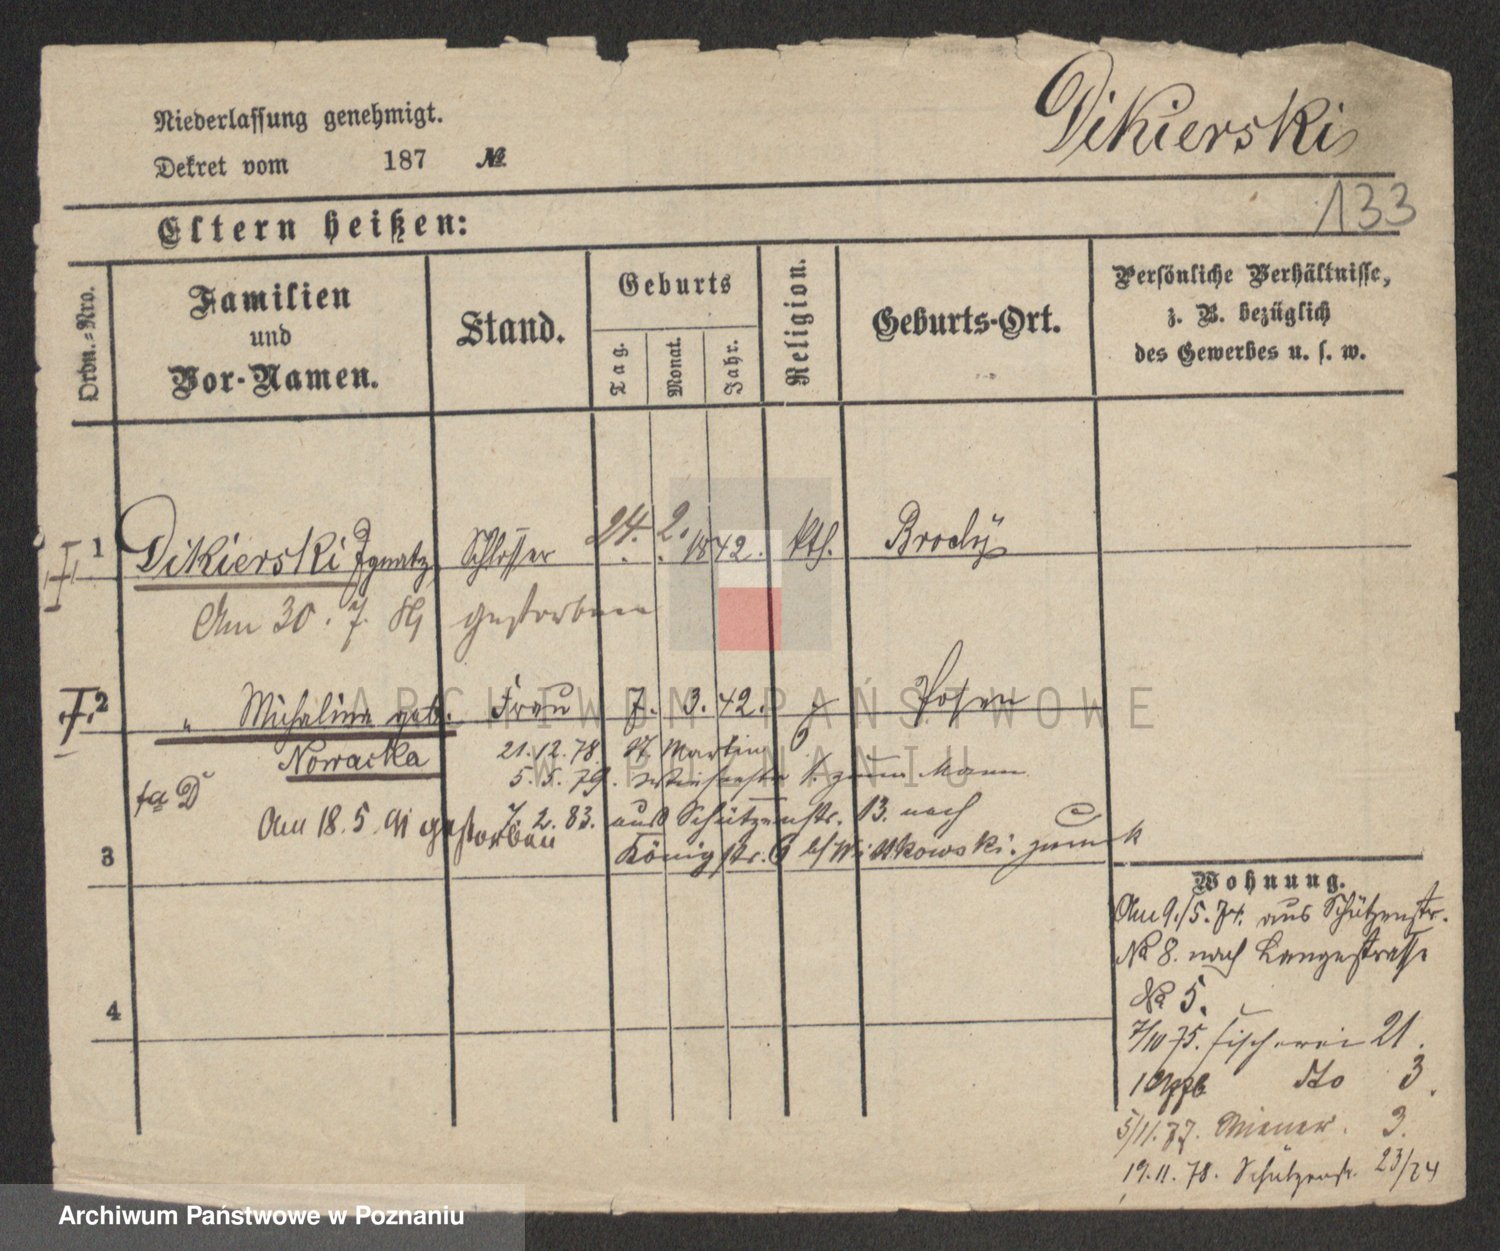 Dikierski
Niederlassung genehmigt.
Dekret vom 187 №
133
Eltern heißen:
Ordn.-Nro.
Familien
und
Vor-Namen.
Stand.
Geburts
Tag.
Monat.
Jahr.
Religion.
Geburts-Ort.
Persönliche Verhältnisse,
z. B. bezüglich
des Gewerbes u. s. w.
1 Dikierski Ignatz Schlosser 24. 2. 1842. kth. Brody
Am 30. 7. gestorben
2 " Michalina geb. Frau 7. 3. 42. Posen
Nowacka
21.12.78. St Martin 6
5. 5. 79. z. zum Mann
7. 2. 83. aus Schützenstr. 13. nach
Am 18. 5. 91 gestorben
Königstr. 6 b/ Wittkowski. zurück
3
4
Wohnung.
Am 9./5. 74. aus Schützenstr.
№ 8. nach Langestrasse
№ 5.
7/10 75. Fischerei 21.
dto 3.
5/11. 77. Wiener. 3.
19. 11. 78. Schützenstr. 23/24
ARCHIWUM PAŃSTWOWE
W POZNANIU
Archiwum Państwowe w Poznaniu